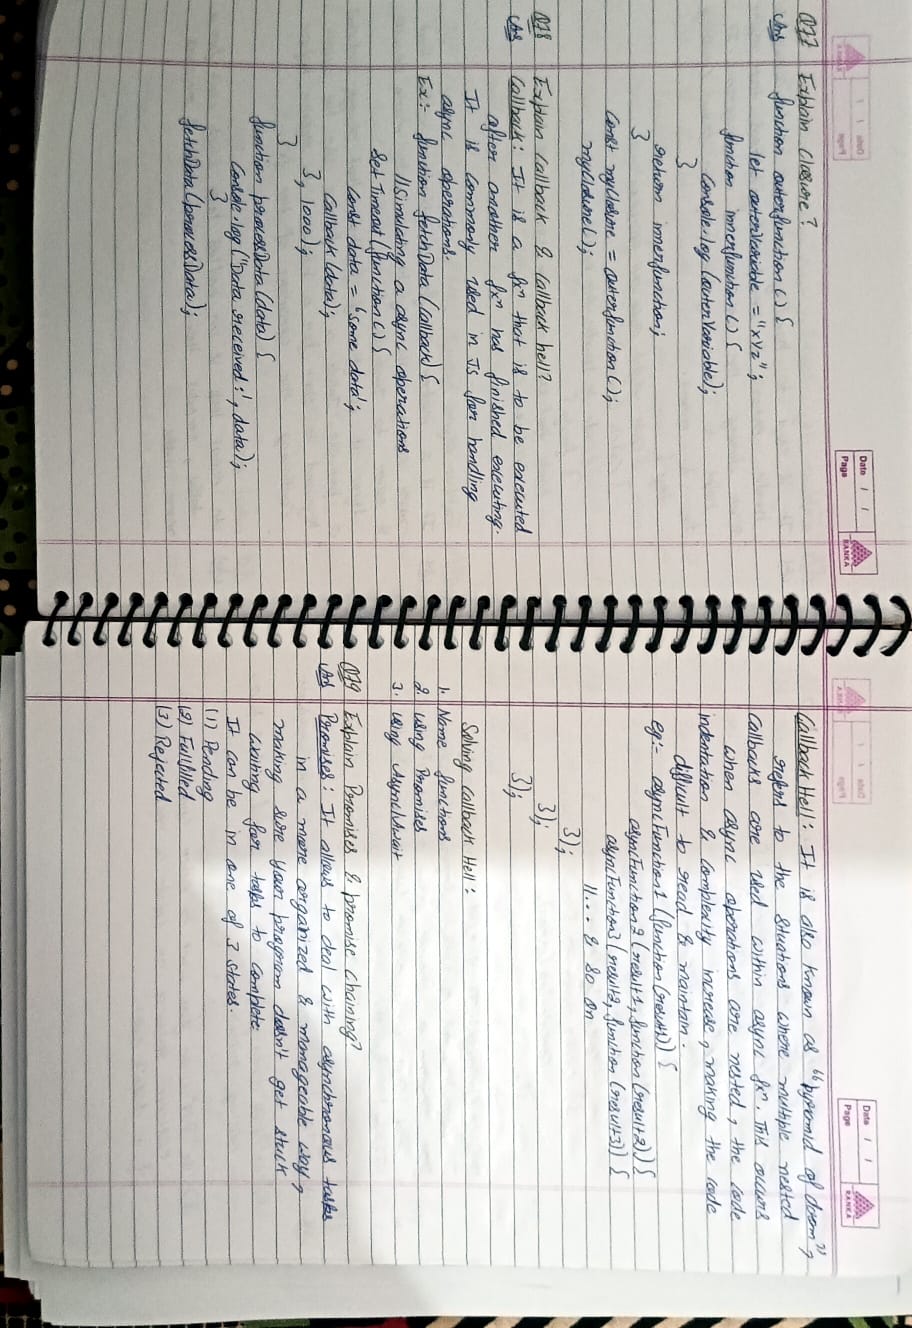 Date / /
Page
RANKA
Q77 Explain Closure?
Ans function outerfunction() {
let outerVariable = "xyz";
function innerfunction() {
console.log (outerVariable);
}
return innerfunction;
}
const myclosure = outerfunction();
myclosure();
Q78 Explain callback & callback hell?
Ans Callback: It is a fxn that is to be executed
after another fxn has finished executing.
It is commonly used in JS for handling
async operations.
Ex:- function fetchData (callback) {
//Simulating a async operations
setTimeout (function() {
const data = 'some data';
callback (data);
}, 1000);
}
function processData (data) {
console.log ("Data received:', data);
}
fetchData (processData);
Date / /
Page
RANKA
Callback Hell: It is also known as "pyramid of doom",
refers to the situations where multiple nested
callbacks are used within async fxn. This occurs
when async operations are nested, the code
indentation & complexity increase, making the code
difficult to read & maintain.
eg:- asyncFunction1 (function(result1) {
asyncFunction2 (result1, function (result2)) {
asyncFunction3 (result2, function (result3)) {
//... & so on
});
});
});
Solving callback Hell:
1. Name functions
2. using Promises
3. using Async/Await
Q79 Explain Promises & promise chaining?
Ans Promises: It allows to deal with asynchronous tasks
in a more organized & manageable way,
making sure your program doesn't get stuck
waiting for tasks to complete.
It can be in one of 3 states.
(1) Pending
(2) Fullfilled
(3) Rejected